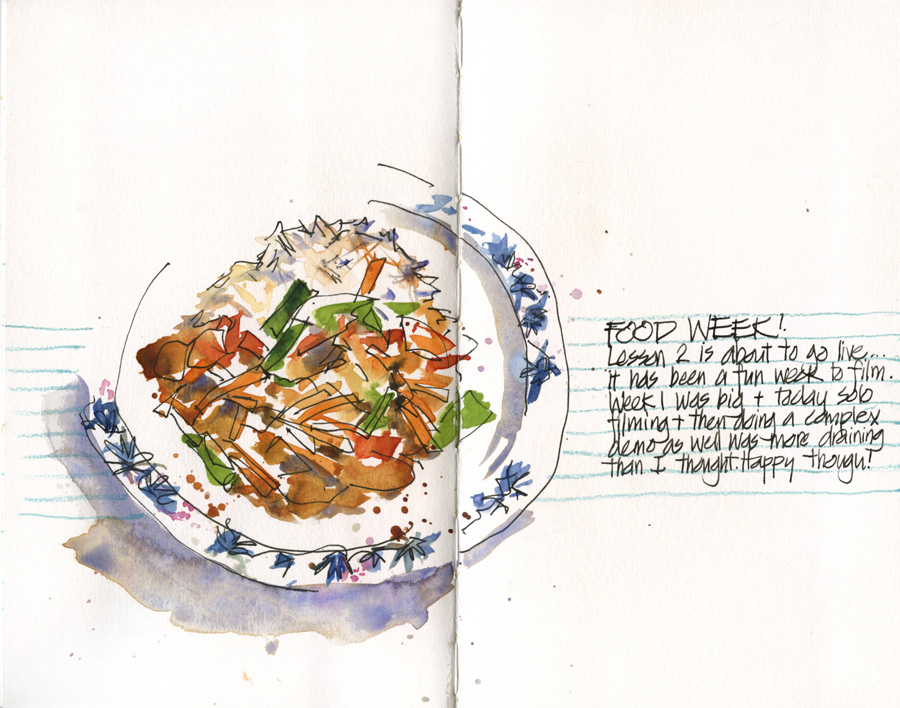 FOOD WEEK!
Lesson 2 is about to go live....
it has been a fun week to film.
Week 1 was big + today solo
filming + then doing a complex
demo as well was more draining
than I thought. Happy though!